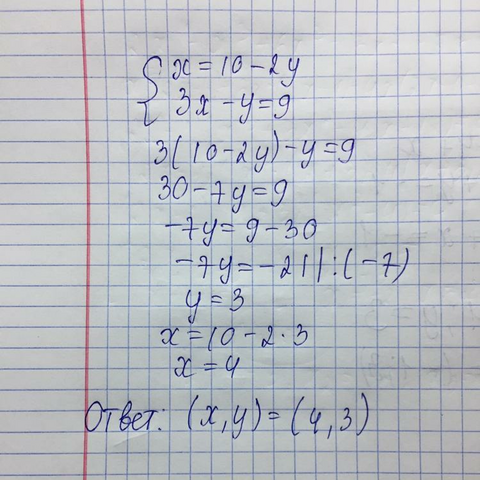 { x = 10 - 2y
3x - y = 9
3(10 - 2y) - y = 9
30 - 7y = 9
-7y = 9 - 30
-7y = -21 | : (-7)
y = 3
x = 10 - 2 · 3
x = 4
Ответ: (x, y) = (4, 3)